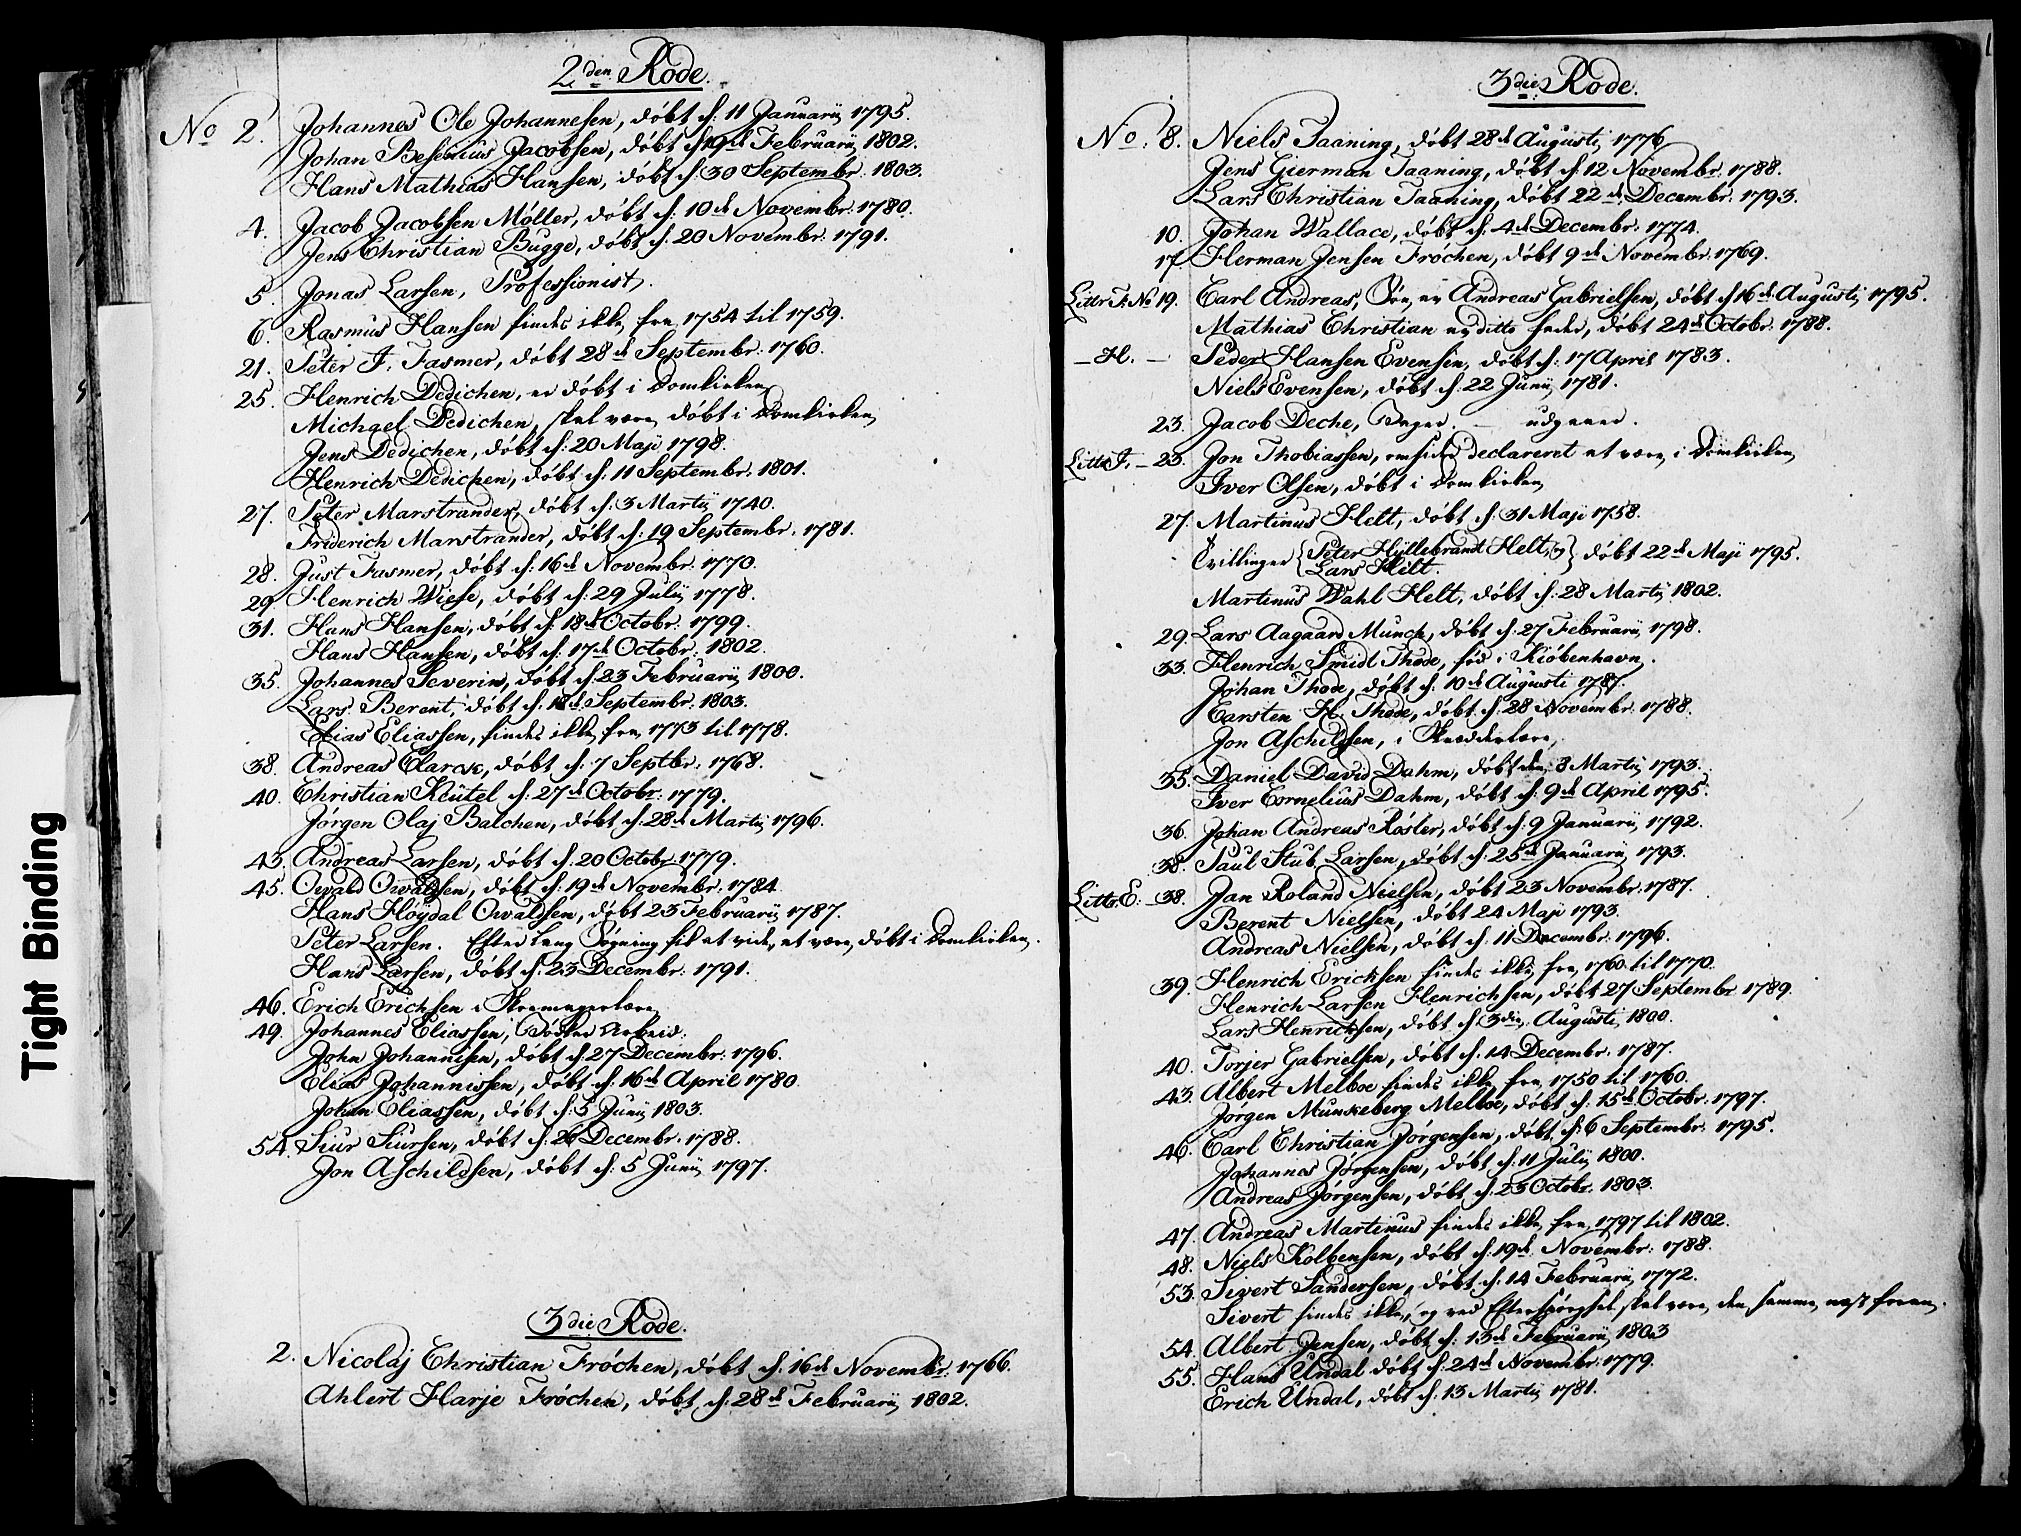 2den Rode.
No 2. Johannes Ole Johannesen, döbt d: 11 Januarij 1795.
Johan Besenius Jacobsen, döbt d 19d Februarij 1802.
Hans Mathias Hansen, döbt d: 30 Septembr. 1803.
4. Jacob Jacobsen Möller, döbt d: 10d Novembr: 1780.
Jens Christian Bugge, döbt d: 20 Novembr. 1791.
5. Jonas Larsen, Professionist.
6. Rasmus Hansen findes ikke fra 1754 til 1759.
21. Peter J. Fasmer, döbt 28d Septembr: 1760.
25. Henrich Dedichen, er döbt i Domkirken
Michael Dedichen, skal være döbt i Domkirken
Jens Dedichen, döbt d: 20 Maji 1798.
Henrich Dedichen, döbt d: 11 Septembr. 1801.
27. Peter Marstrander, döbt d: 3 Martij 1740.
Friderich Marstrander, döbt d: 19 Septembr. 1781.
28. Just Fasmer, döbt d: 16d Novembr. 1770.
29. Henrich Wiese, döbt d: 29 Julij 1778.
31. Hans Hansen, döbt d: 18d Octobr. 1799.
Hans Hansen, döbt d: 17d Octobr: 1802.
35. Johannes Severin, döbt d: 23 Februarij 1800.
Lars Berent, döbt d: 18d Septembr. 1803.
Elias Eliassen, findes ikke fra 1773 til 1778.
38. Andreas Clarck, döbt d: 7 Septbr: 1768.
40. Christian Keutel d: 27d Octobr: 1779.
Jörgen Olaj Balchen, döbt d: 28d Martij 1796.
43. Andreas Larsen, döbt d. 20 Octobr. 1779.
45. Owald Owaldsen, döbt d: 19d Novembr. 1784.
Hans Höydal Owaldsen, döbt 23 Februarij 1787.
Peter Larsen. Efter lang Søgning fik at vide, at være döbt i Domkirken.
Hans Larsen, döbt d: 23 Decembr: 1791.
46. Erich Erichsen i Skomagerlære
49. Johannes Eliassen, Bødker Arbeid.
John Johannisen, döbt d: 27 Decembr: 1796.
Elias Johannissen, döbt d: 16d April 1780.
Johan Eliassen, döbt d: 5 Junij 1803.
54. Siur Siursen, döbt d: 26 Decembr. 1788.
Jon Aschildsen, döbt d: 5 Junij 1797.
3die Rode.
2. Nicolaj Christian Fröchen, döbt d: 16d Novembr: 1766.
Ahlert Harje Fröchen, döbt d: 28d Februarij 1802.
3die Rode.
No. 8. Niels Taaning, döbt 28d Augusti 1776
Jens Gierman Taaning, döbt d: 12 Novembr. 1788.
Lars Christian Taaning, döbt 22d Decembr. 1793.
10. Johan Wallace, döbt d: 4d Decembr: 1774.
17. Herman Jensen Fröchen, döbt 9d Novembr. 1769.
Littr F. No 19. Carl Andreas, Søn av Andreas Gabrielsen, döbt d 16d Augustij 1795.
Mathias Christian av ditto Fader, döbt 24d Octobr. 1788.
- H. - Peder Hansen Evensen, döbt d: 17 April 1783.
Niels Evensen, döbt d: 22 Junij 1781.
23. Jacob Deche, Bager. - udgaaer.
Littr J. - 23. Jon Thobiassen, omsider declareret at være i Domkirken
Iver Olsen, döbt i Domkirken
27. Martinus Helt, döbt d: 31 Maji 1758.
Tvillinger { Peter Hyllebrandt Helt, og } döbt 22d Maji 1795.
Lars Helt.
Martinus Wahl Helt, döbt d: 28 Martij 1802.
29. Lars Aagaard Munch, döbt d: 27 Februarij 1798.
33. Henrich Smidt Thode, fød i Kiöbenhavn.
Johan Thode, döbt d: 10d Augusti 1787.
Carsten H. Thode, döbt d: 28 Novembr. 1788.
Jon Aschildsen, i Skrædderlære,
35. Daniel David Dahm, döbt den 8 Martij 1793.
Iver Cornelius Dahm, döbt d: 9d April 1795.
36. Johan Andreas Rösler, döbt d: 9 Januarij 1792.
38. Paul Stub Larsen, döbt d: 25d Januarij 1793.
Littr. E: - 38. Jan Roland Nielsen, döbt 23 Novembr: 1787.
Berent Nielsen, döbt 24 Maji 1793.
Andreas Nielsen, döbt d: 11 Decembr: 1796.
39. Henrich Ericksen findes ikke fra 1760 til 1770.
Henrich Larsen Henrichsen, döbt 27 Septembr 1789.
Lars Henrichsen, döbt d 3die Augusti 1800.
40. Torjer Gabrielsen, döbt d: 14 Decembr: 1787.
43. Albert Melboe findes ikke fra 1750 til 1760.
Jörgen Munkeberg Melboe, döbt d: 15d Octobr. 1797.
46. Carl Christian Jörgensen, döbt d: 6 Septembr. 1795.
Johannes Jörgensen, döbt d: 11 Julij 1800.
Andreas Jörgensen, döbt d: 23 Octobr. 1803
47. Andreas Martinus findes ikke fra 1797 til 1802.
48. Niels Kolbensen, döbt d: 19d Novembr: 1788.
53. Sivert Sandersen, döbt d: 14 Februarij 1772.
Sivert findes ikke, og ved Efterspørgsel skal være den samme næst foran.
54. Albert Jensen, döbt d: 13d Februarij 1803
55. Hans Undal döbt d: 24d Novembr: 1779.
Erich Undal, döbt d: 13 Martij 1781.
Tight Binding